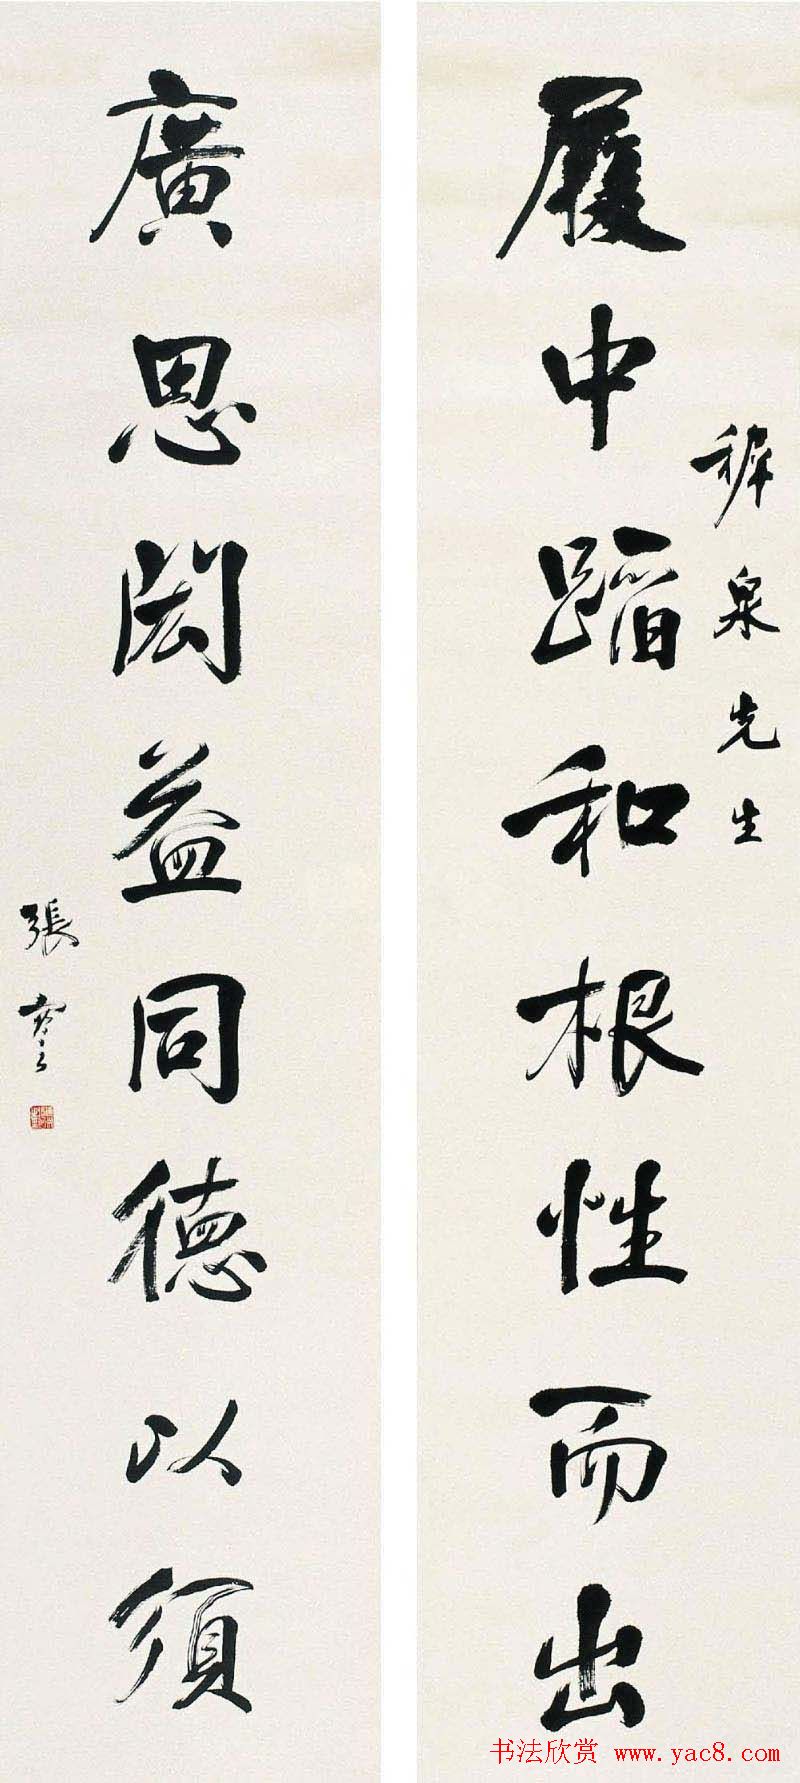 穉泉先生
履中蹈和根性而出
廣思閎益同德以須
張謇
书法欣赏 www.yac8.com